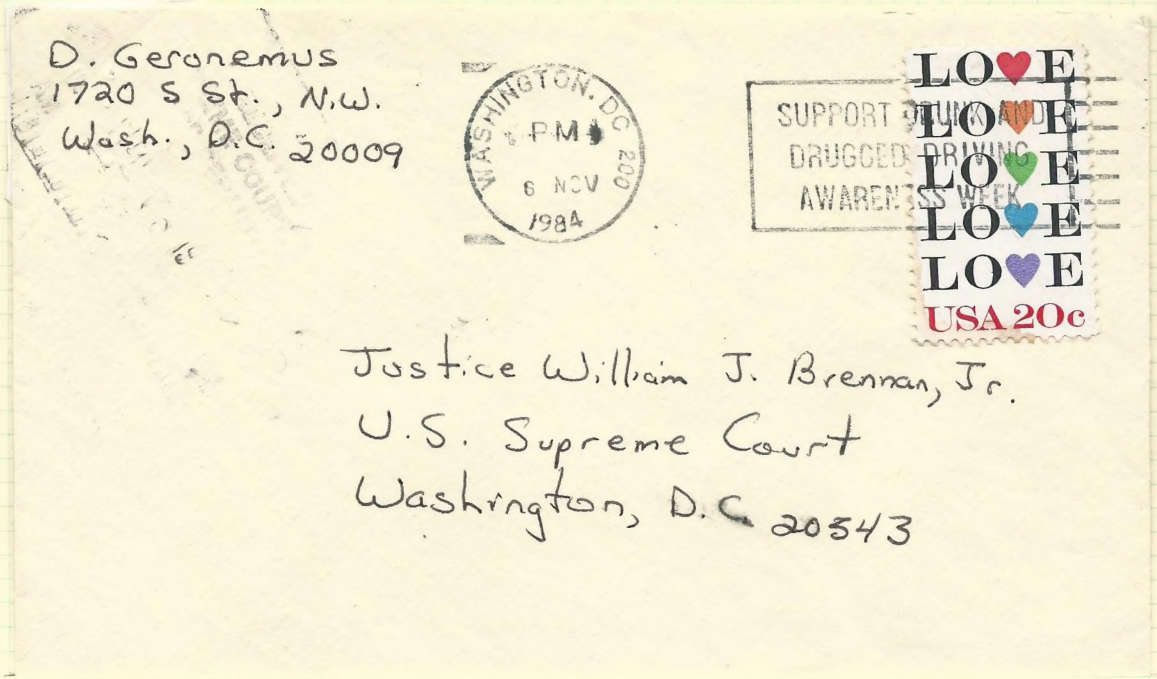 D. Geronemus
1720 S St., N.W.
Wash., D.C. 20009
WASHINGTON, DC 200
PM
6 NOV
1984
SUPPORT DRUNK AND
DRUGGED DRIVING
AWARENESS WEEK
LO♥E
LO♥E
LO♥E
LO♥E
LO♥E
USA 20c
Justice William J. Brennan, Jr.
U.S. Supreme Court
Washington, D.C. 20543